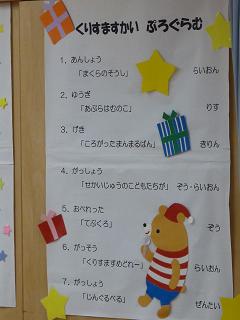 くりすますかい ぷろぐらむ
1、あんしょう
「まくらのそうし」 らいおん
2、ゆうぎ
「あぶらはむのこ」 りす
3、げき
「ころがったまんまるぱん」 きりん
4、がっしょう
「せかいじゅうのこどもたちが」 ぞう・らいおん
5、おぺれった
「てぶくろ」 ぞう
6、がっそう
「くりすますめどれー」 らいおん
7、がっしょう
「じんぐるべる」 ぜんたい